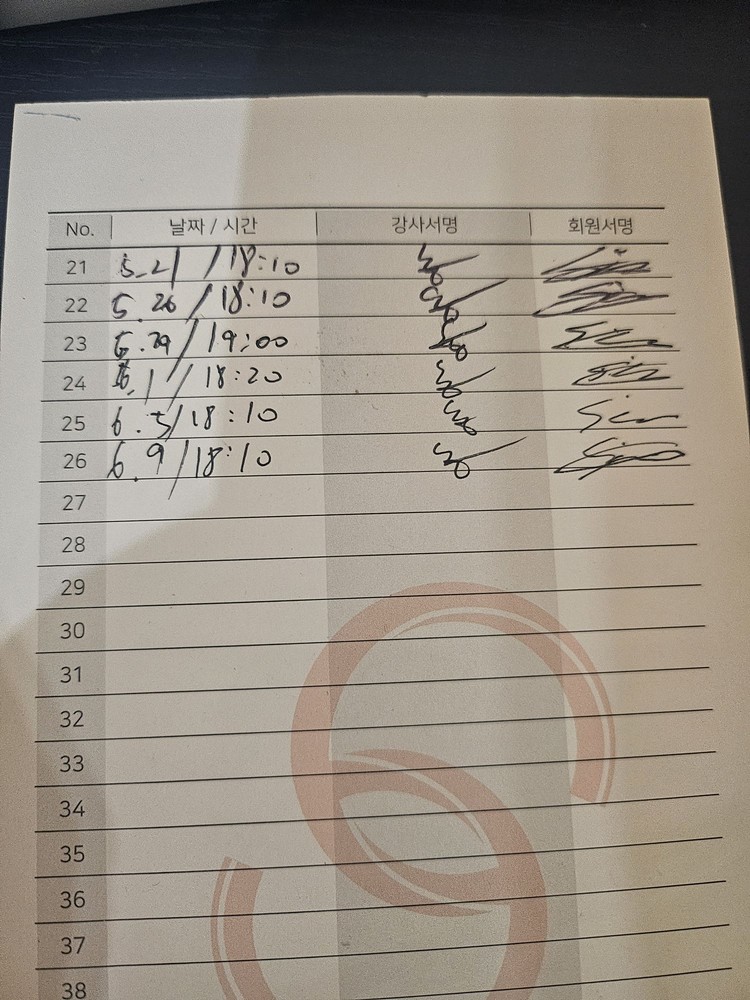 No. 날짜 / 시간 강사서명 회원서명
21 5.21 / 18:10
22 5.26 / 18:10
23 5.29 / 19:00
24 6.1 / 18:20
25 6.5 / 18:10
26 6.9 / 18:10
27
28
29
30
31
32
33
34
35
36
37
38